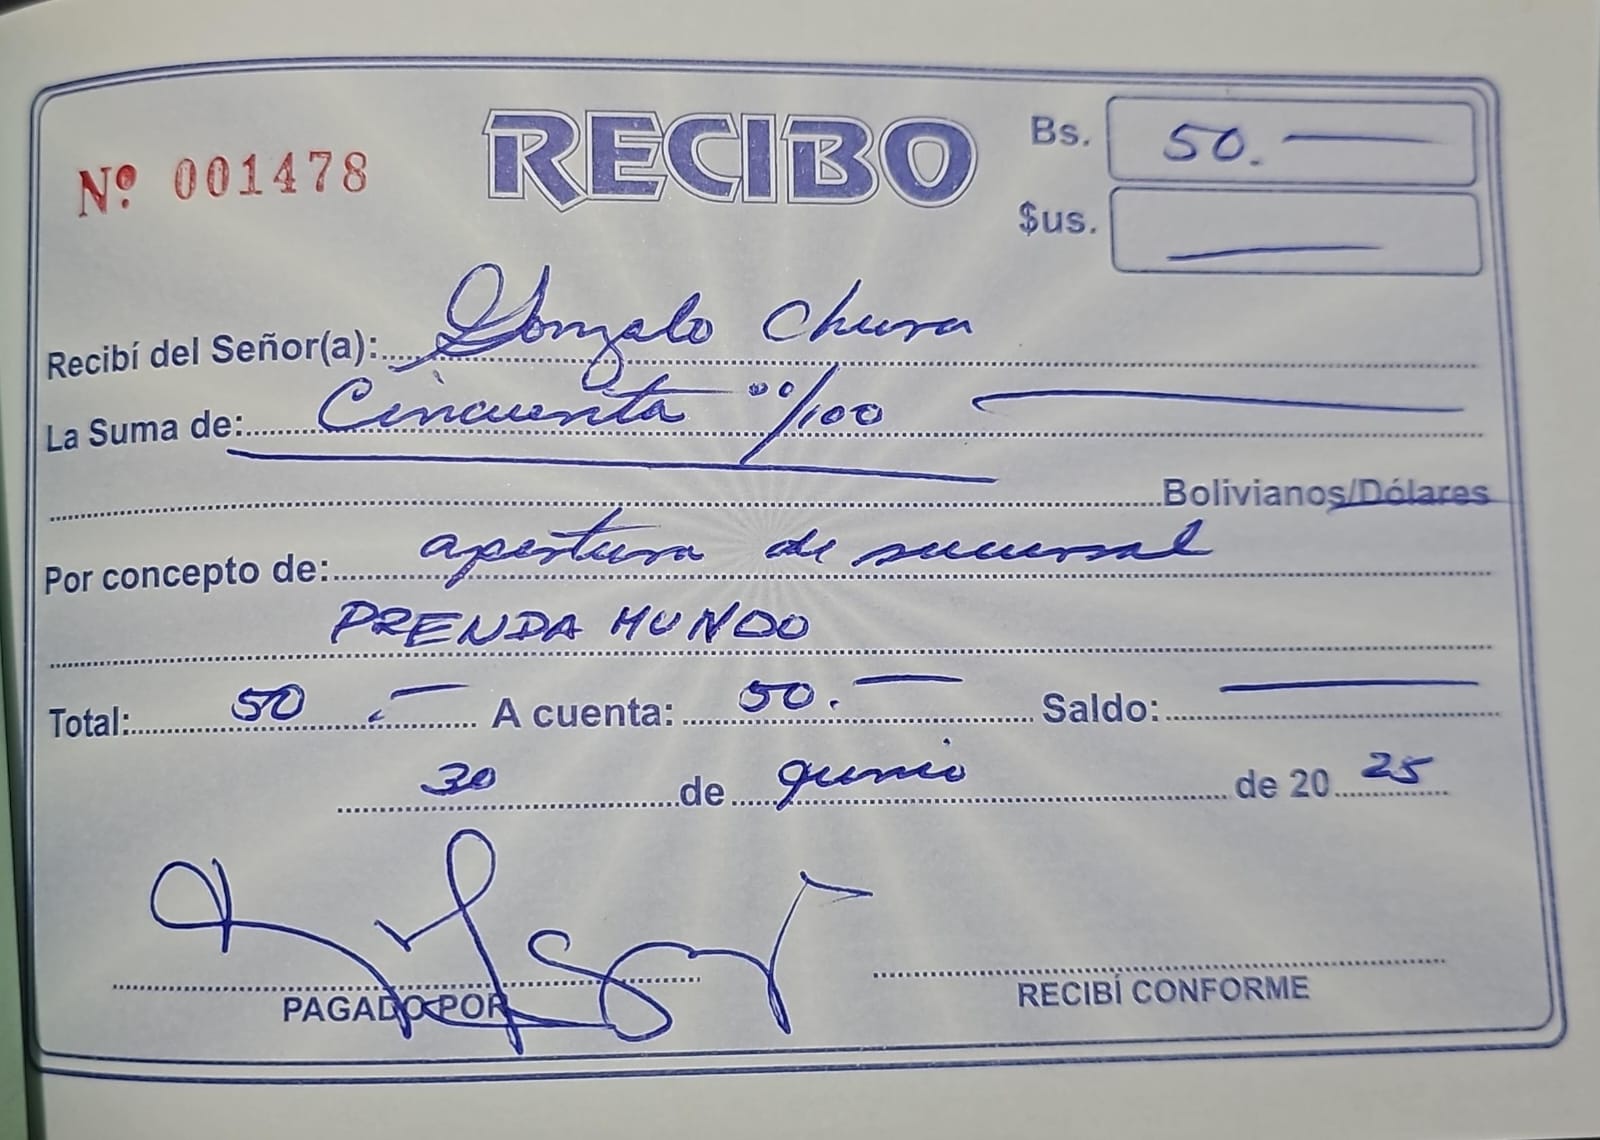 Nº 001478
RECIBO
Bs. 50.
$us.
Recibí del Señor(a): Gonzalo Chura
La Suma de: Cincuenta 00/100
Bolivianos/Dólares
Por concepto de: apertura de sucursal
PRENDA MUNDO
Total: 50.- A cuenta: 50.- Saldo:
30 de junio de 20 25
PAGADO POR
RECIBÍ CONFORME